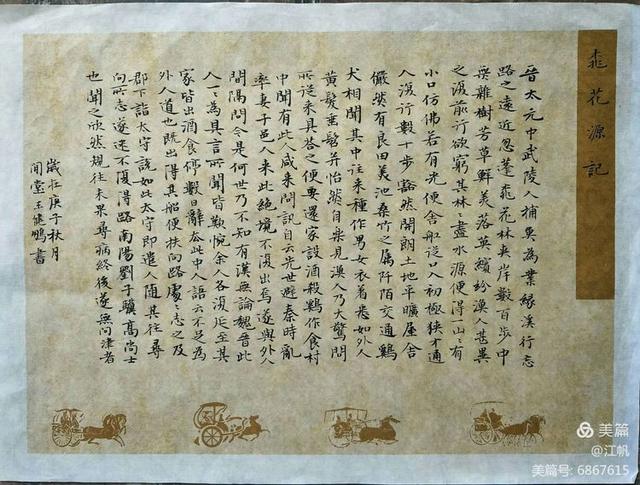 桃花源記
晉太元中武陵人捕魚為業緣溪行忘
路之遠近忽逢桃花林夾岸數百步中
無雜樹芳草鮮美落英繽紛漁人甚異
之復前行欲窮其林々盡水源便得一山々有
小口仿佛若有光便舍船從口入初極狹才通
人復行數十步豁然開朗土地平曠屋舍
儼然有良田美池桑竹之屬阡陌交通鷄
犬相聞其中往來種作男女衣着悉如外人
黃髮垂髫并怡然自樂見漁人乃大驚問
所從來具答之便要還家設酒殺鷄作食村
中聞有此人咸來問訊自云先世避秦時亂
率妻子邑人來此絕境不復出焉遂與外人
間隔問今是何世乃不知有漢無論魏晉此
人一々為具言所聞皆歎惋余人各復延至其
家皆出酒食停數日辭去此中人語云不足為
外人道也既出得其船便扶向路處々志之及
郡下詣太守說如此太守即遣人隨其往尋
向所志遂迷不復得路南陽劉子驥高尚士
也聞之欣然規往未果尋病終後遂無問津者
歲在庚子秋月
閒堂王健鵬書
美篇
@江帆
美篇号: 6867615